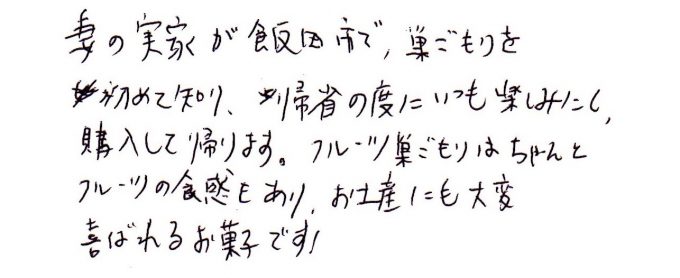 妻の実家が飯田市で、巣ごもりを
初めて知り、帰省の度にいつも楽しみにし、
購入して帰ります。フルーツ巣ごもりはちゃんと
フルーツの食感もあり、お土産にも大変
喜ばれるお菓子です!